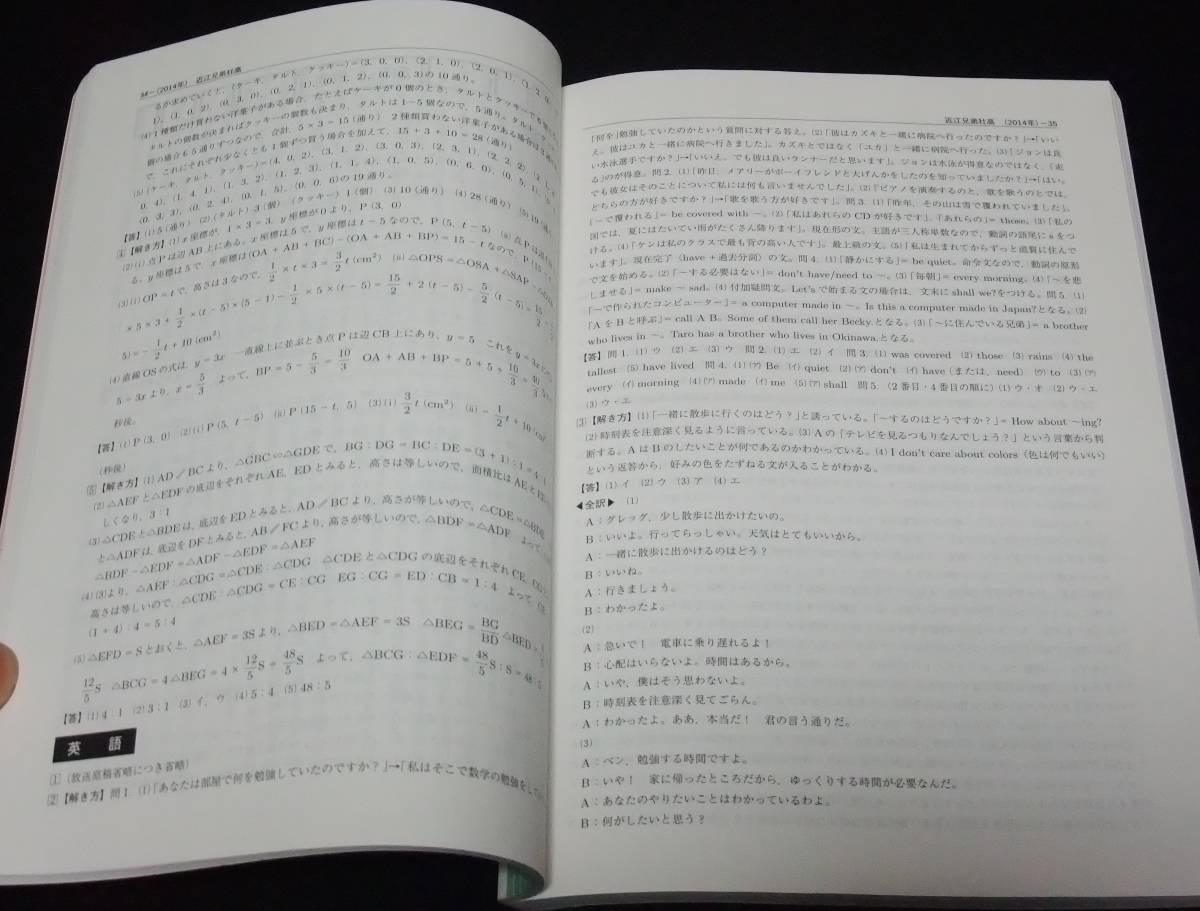 34－(2014年) 近江兄弟社高
るか求めていくと，(ケーキ，タルト，クッキー)＝(3，0，0)，(2，1，0)，(2，0，1)，(1，2，0)
1)，(1，0，2)，(0，3，0)，(0，2，1)，(0，1，2)，(0，0，3)の10通り。
(4) 1種類だけ買わない洋菓子がある場合，たとえばケーキが0個のとき，タルトとクッキーで
タルトの個数が決まればクッキーの個数も決まり，タルトは1~5個なので，5通り。タルト，クッ
個の場合も5通りずつなので，合計，5×3＝15(通り) 2種類買わない洋菓子がある場合は3通り
で，これにそれぞれ少なくとも1個ずつ買う場合を加えて，15＋3＋10＝28(通り)
(5) (ケーキ，タルト，クッキー)＝(4，0，2)，(3，1，2)，(3，0，3)，(2，3，1)，(2，2，2)
0，4)，(1，4，1)，(1，3，2)，(1，2，3)，(1，1，4)，(1，0，5)，(0，6，0)，(0，5，1)，
(0，3，3)，(0，2，4)，(0，1，5)，(0，0，6)の19通り。
【答】(1) 5(通り) (2) (タルト) 3(個) (クッキー) 1(個) (3) 10(通り) (4) 28(通り) (5) 19
4【解き方】(1) x座標が，1×3＝3，y座標が0より，P(3，0)
(2)(i) 点Pは辺AB上にある。x座標は5で，y座標はt－5なので，P(5，t－5) (ii) 点Pは辺
る。y座標は5で，x座標は(OA＋AB＋BC)－(OA＋AB＋BP)＝15－tなので，P(15－t
(3)(i) OP＝tで，高さは3なので，1/2×t×3＝3/2t(cm²) (ii) △OPS＝△OSA＋△SAP－
×5×3＋1/2×(t－5)×(5－1)－1/2×5×(t－5)＝15/2＋2(t－5)－5/2(t－5)＝15/2－1/2
5)＝－1/2t＋10(cm²)
(4) 直線OSの式は，y＝3x 一直線上に並ぶとき点Pは辺CB上にあり，y＝5 これをy＝3x
5＝3xより，x＝5/3 よって，BP＝5－5/3＝10/3 OA＋AB＋BP＝5＋5＋10/3＝40/3
秒後。
【答】(1) P(3，0) (2)(i) P(5，t－5) (ii) P(15－t，5) (3)(i) 3/2t(cm²) (ii) －1/2t＋10(cm²)
(秒後)
5【解き方】(1) AD∥BCより，△GBC∽△GDEで，BG：DG＝BC：DE＝(3＋1)：1＝4：1
(2) △AEFと△EDFの底辺をそれぞれAE，EDとみると，高さは等しいので，面積比はAEと
しくなり，3：1
(3) △CDEと△BDEは，底辺をEDとみると，AD∥BCより，高さが等しいので，△CDE＝△BDE
と△ADFは，底辺をDFとみると，AB∥FCより，高さが等しいので，△BDF＝△ADF よって，
△BDF－△EDF＝△ADF－△EDF＝△AEF
(4) (3)より，△AEF：△CDG＝△CDE：△CDG △CDEと△CDGの底辺をそれぞれCE，CG
高さは等しいので，△CDE：△CDG＝CE：CG EG：CG＝ED：CB＝1：4 よって，CE
(1＋4)：4＝5：4
(5) △EFD＝Sとおくと，△AEF＝3Sより，△BED＝△AEF＝3S △BEG＝BG/BD△BED＝
12/5S △BCG＝4△BEG＝4×12/5S＝48/5S よって，△BCG：△EDF＝48/5S：S＝48：5
【答】(1) 4：1 (2) 3：1 (3) イ，ウ (4) 5：4 (5) 48：5
英 語
1 (放送原稿省略につき省略)
2【解き方】問1．(1)「あなたは部屋で何を勉強していたのですか？」→「私はそこで数学の勉強をして
近江兄弟社高 (2014年)－35
「何を」勉強していたのかという質問に対する答え。(2)「彼はカズキと一緒に病院へ行ったのですか？」→「いい
え。彼はユカと一緒に病院へ行きました」。カズキとではなく「ユカ」と一緒に病院へ行った。(3)「ジョンは良
い水泳選手ですか？」→「いいえ。でも彼は良いランナーだと思います」。ジョンは水泳が得意なのではなく，「走
る」のが得意。問2．(1)「昨日，メアリーがボーイフレンドと大げんかをしたのを知っていましたか？」→「はい。
でも彼女はそのことについて私には何も言いませんでした」。(2)「ピアノを演奏するのと，歌を歌うのとでは，
どちらの方が好きですか？」→「歌を歌う方が好きです」。問3．(1)「昨年，その山は雪で覆われていました」。
「～で覆われる」＝ be covered with ～。(2)「私はあれらのCDが好きです」。「あれらの」＝ those。(3)「私の
国では，夏にはたいてい雨がたくさん降ります」。現在形の文。主語が三人称単数なので，動詞の語尾にsをつ
ける。(4)「ケンは私のクラスで最も背の高い人です」。最上級の文。(5)「私は生まれてからずっと滋賀に住んで
います」。現在完了〈have＋過去分詞〉の文。問4．(1)「静かにする」＝ be quiet。命令文なので，動詞の原形
で文を始める。(2)「～する必要はない」＝ don't have/need to ～。(3)「毎朝」＝ every morning。(4)「～を悲
しませる」＝ make ～ sad。(4) 付加疑問文。Let'sで始まる文の場合は，文末にshall we?をつける。問5．(1)
「～で作られたコンピューター」＝ a computer made in ～。Is this a computer made in Japan?となる。(2)
「AをBと呼ぶ」＝ call A B。Some of them call her Becky.となる。(3)「～に住んでいる兄弟」＝ a brother
who lives in ～。Taro has a brother who lives in Okinawa.となる。
【答】問1．(1) ウ (2) エ (3) ウ 問2．(1) エ (2) イ 問3．(1) was covered (2) those (3) rains (4) the
tallest (5) have lived 問4．(1)(ア) Be (イ) quiet (2)(ア) don't (イ) have(または，need) (ウ) to (3)(ア)
every (イ) morning (4)(ア) made (イ) me (5)(ア) shall 問5．(2番目・4番目の順に) (1) ウ・オ (2) ウ・エ
(3) ウ・エ
3【解き方】(1)「一緒に散歩に行くのはどう？」と誘っている。「～するのはどうですか？」＝ How about ～ing?
(2) 時刻表を注意深く見るように言っている。(3) Aの「テレビを見るつもりなんでしょう？」という言葉から判
断する。AはBのしたいことが何であるのかわかっている。(4) I don't care about colors (色は何でもいい)
という返答から，好みの色をたずねる文が入ることがわかる。
【答】(1) イ (2) ウ (3) ア (4) エ
◀全訳▶ (1)
A：グレッグ，少し散歩に出かけたいの。
B：いいよ。行ってらっしゃい。天気はとてもいいから。
A：一緒に散歩に出かけるのはどう？
B：いいね。
A：行きましょう。
B：わかったよ。
(2)
A：急いで！ 電車に乗り遅れるよ！
B：心配はいらないよ。時間はあるから。
A：いや，僕はそう思わないよ。
B：時刻表を注意深く見てごらん。
A：わかったよ。ああ，本当だ！ 君の言う通りだ。
(3)
A：ベン，勉強する時間ですよ。
B：いや！ 家に帰ったところだから，ゆっくりする時間が必要なんだ。
A：あなたのやりたいことはわかっているわよ。
B：何がしたいと思う？